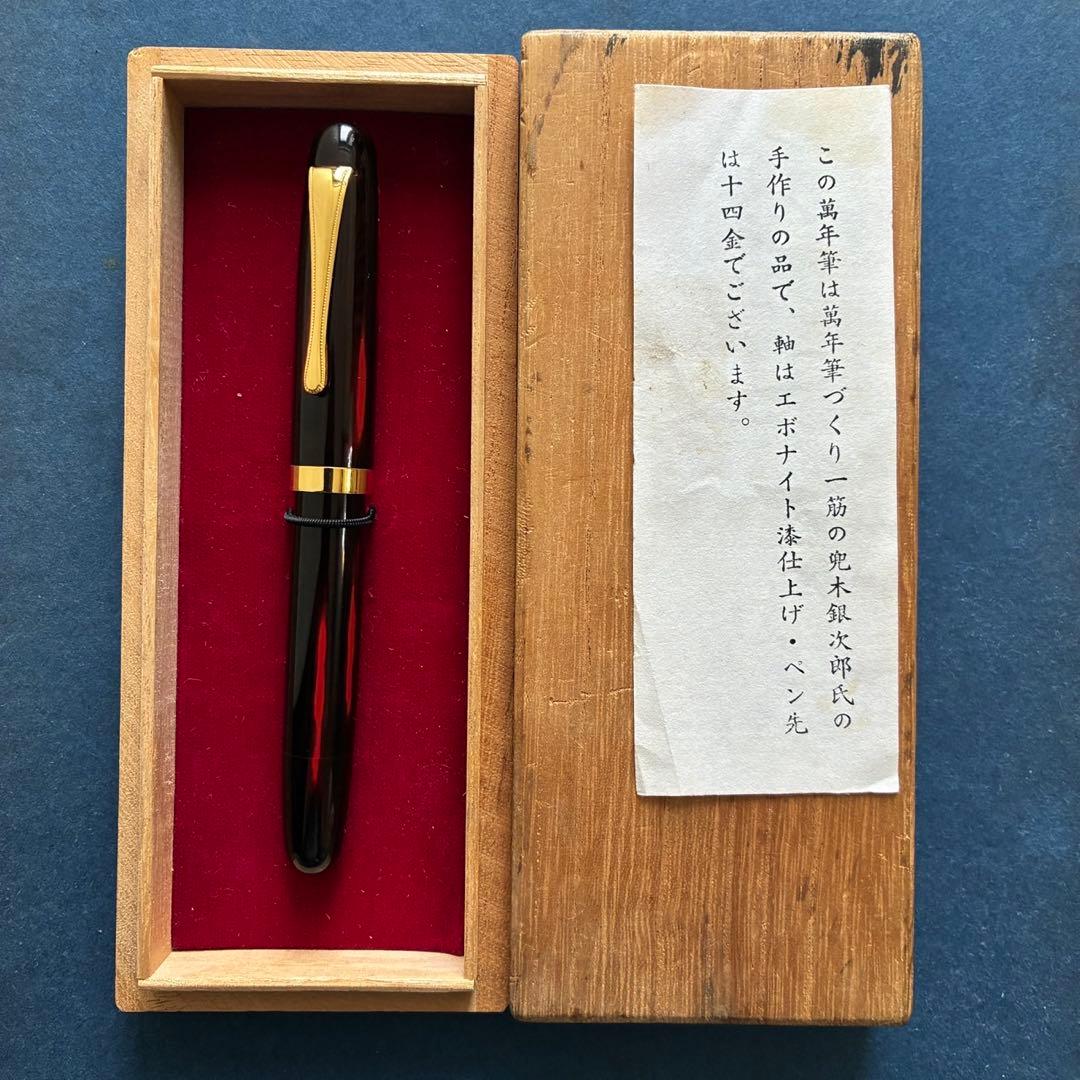 この萬年筆は萬年筆づくり一筋の兜木銀次郎氏の
手作りの品で、軸はエボナイト漆仕上げ・ペン先
は十四金でございます。